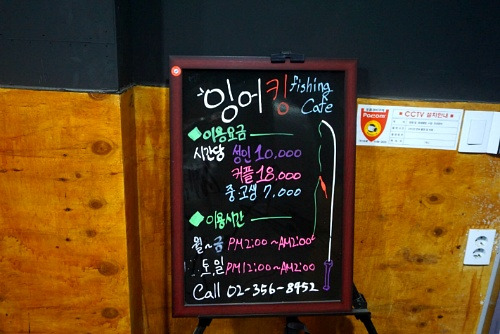 잉어킹 fishing Cafe
◆이용요금
시간당 성인 10,000
커플 18,000
중·고생 7,000
◆이용시간
월~금 PM2:00~AM2:00
토,일 PM12:00~AM2:00
Call 02-356-8952
CCTV 설치안내